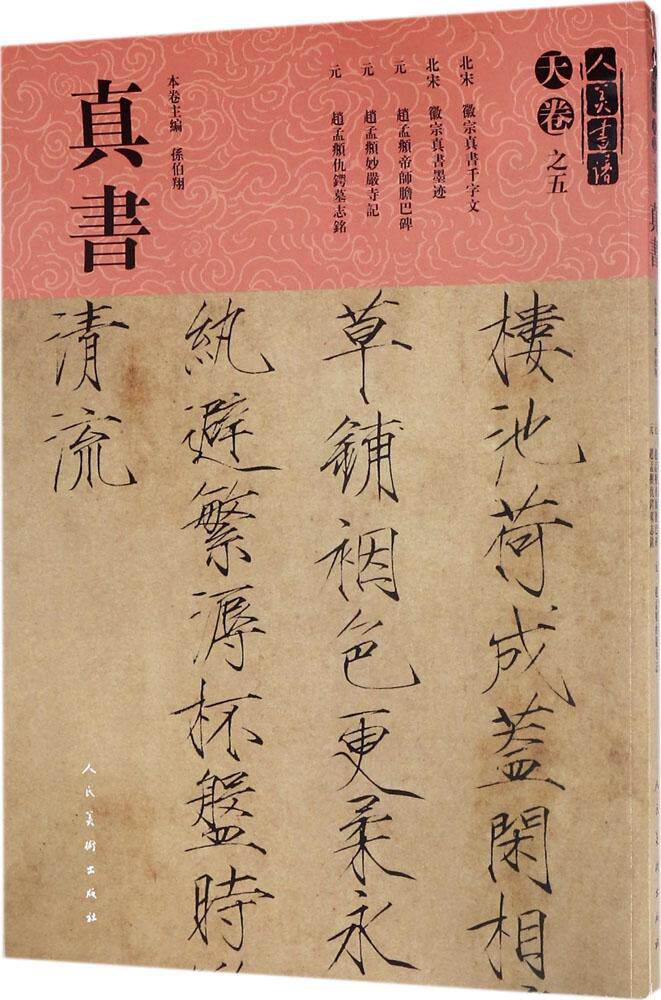 人美書譜
天卷之五
北宋 徽宗真書千字文
北宋 徽宗真書墨迹
元 趙孟頫帝師膽巴碑
元 趙孟頫妙嚴寺記
元 趙孟頫仇鍔墓志銘
本卷主編 孫伯翔
真書
樓池荷成蓋閑相
草鋪裀色更柔永
紈避繁溽杯盤時
清流
人民美術出版社
真書